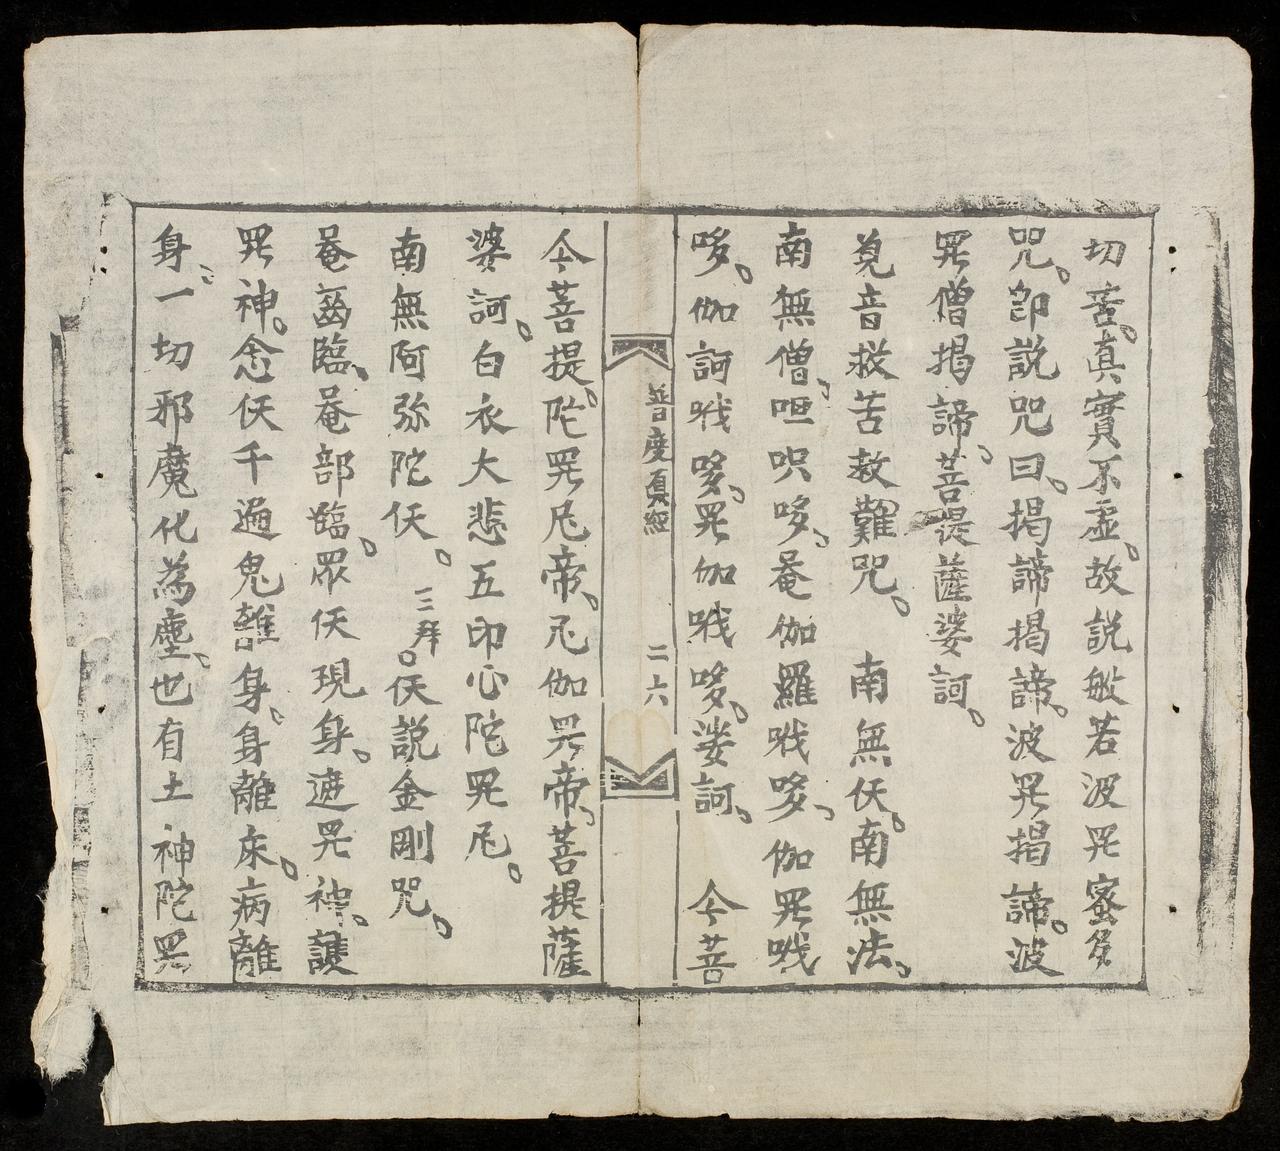 切苦。真實不虛。故説般若波罗蜜多
咒。即説咒曰。揭諦揭諦。波罗揭諦。波
罗僧揭諦。菩提薩婆訶。
覓音救苦救難咒。　南無仸。南無法。
南無僧。呾呮哆。菴伽羅𠲎哆。伽罗𠲎
哆。伽訶𠲎哆。罗伽𠲎哆。娑訶。　今菩
普度真經　二六
今菩提。陀罗尼帝。尼伽罗帝。菩提薩
婆訶。白衣大悲五印心陀罗尼。
南無阿弥陀仸。三拜○仸説金剛咒。
菴齒臨。菴部臨。眾仸現身。遮罗神。護
罗神。念仸千遍鬼離身。身離床。病離
身。一切邪魔化為塵。也有土神陀罗